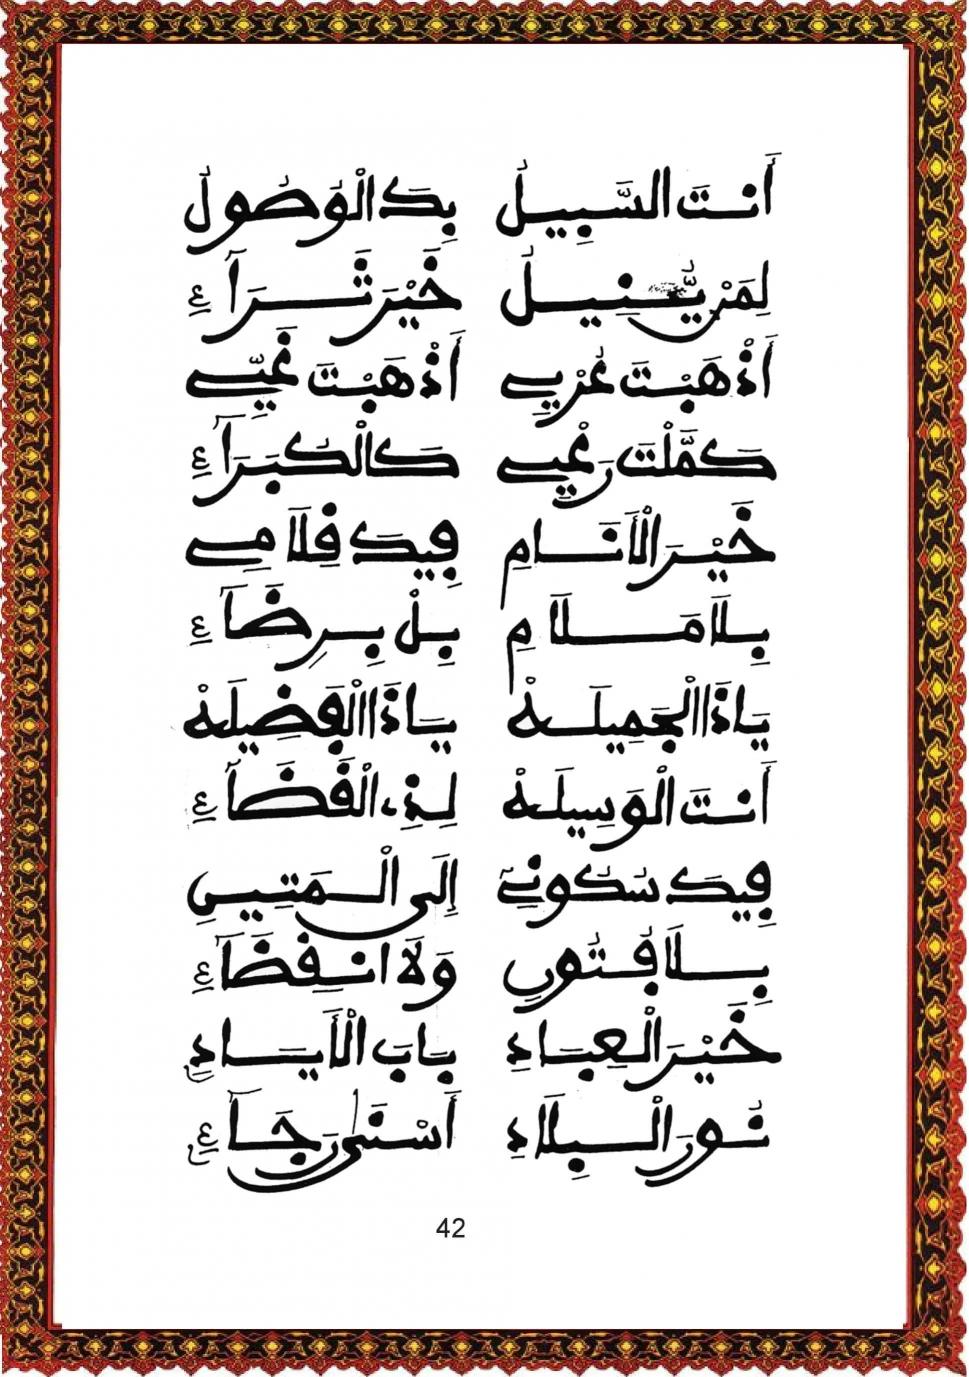 أَنتَ السَّبِيلُ بِكَ الْوُصُولُ
لِمَنْ يُّنِيلُ خَيْرَ ثَرَآءِ
أَذْهَبْتَ عُرْيِي أَذْهَبْتَ غَيِّي
كَمَّلْتَ رَعْيِي كَالْكُبَرَآءِ
خَيْرَ الْأَنَامِ فِيكَ قِلَامِي
بِلَا مَلَامِ بَلْ بِرِضَآءِ
يَا ذَا الْجَمِيلَهْ يَا ذَا الْفَضِيلَهْ
أَنتَ الْوَسِيلَهْ لِذِي الْقَضَآءِ
فِيكَ سُكُونِي إِلَى الْمَتِينِ
بِلَا فُتُونِ وَلَا انْقِضَآءِ
خَيْرَ الْعِبَادِ بَابَ الْأَيَادِ
نُورَ الْبِلَادِ أَسْنَى رَجَآءِ
42